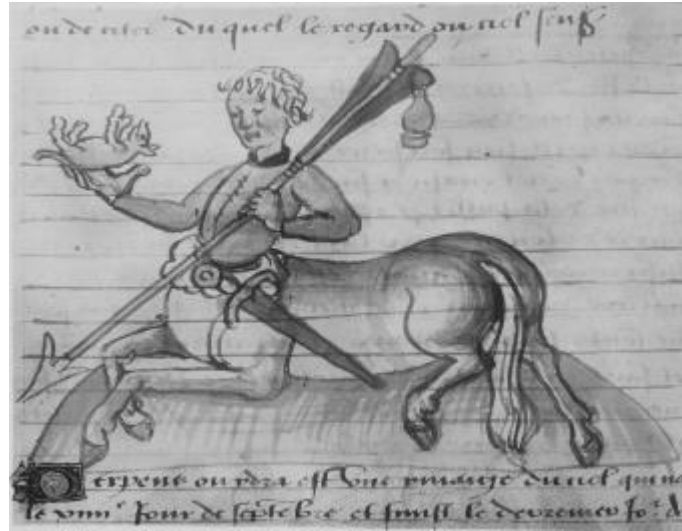 ou de citre du quel le regard ou ciel senß
erpens ou ydra est vne ymaige du ciel qui na
le xviiie Jour de septembre et finist le derrenier Jor d